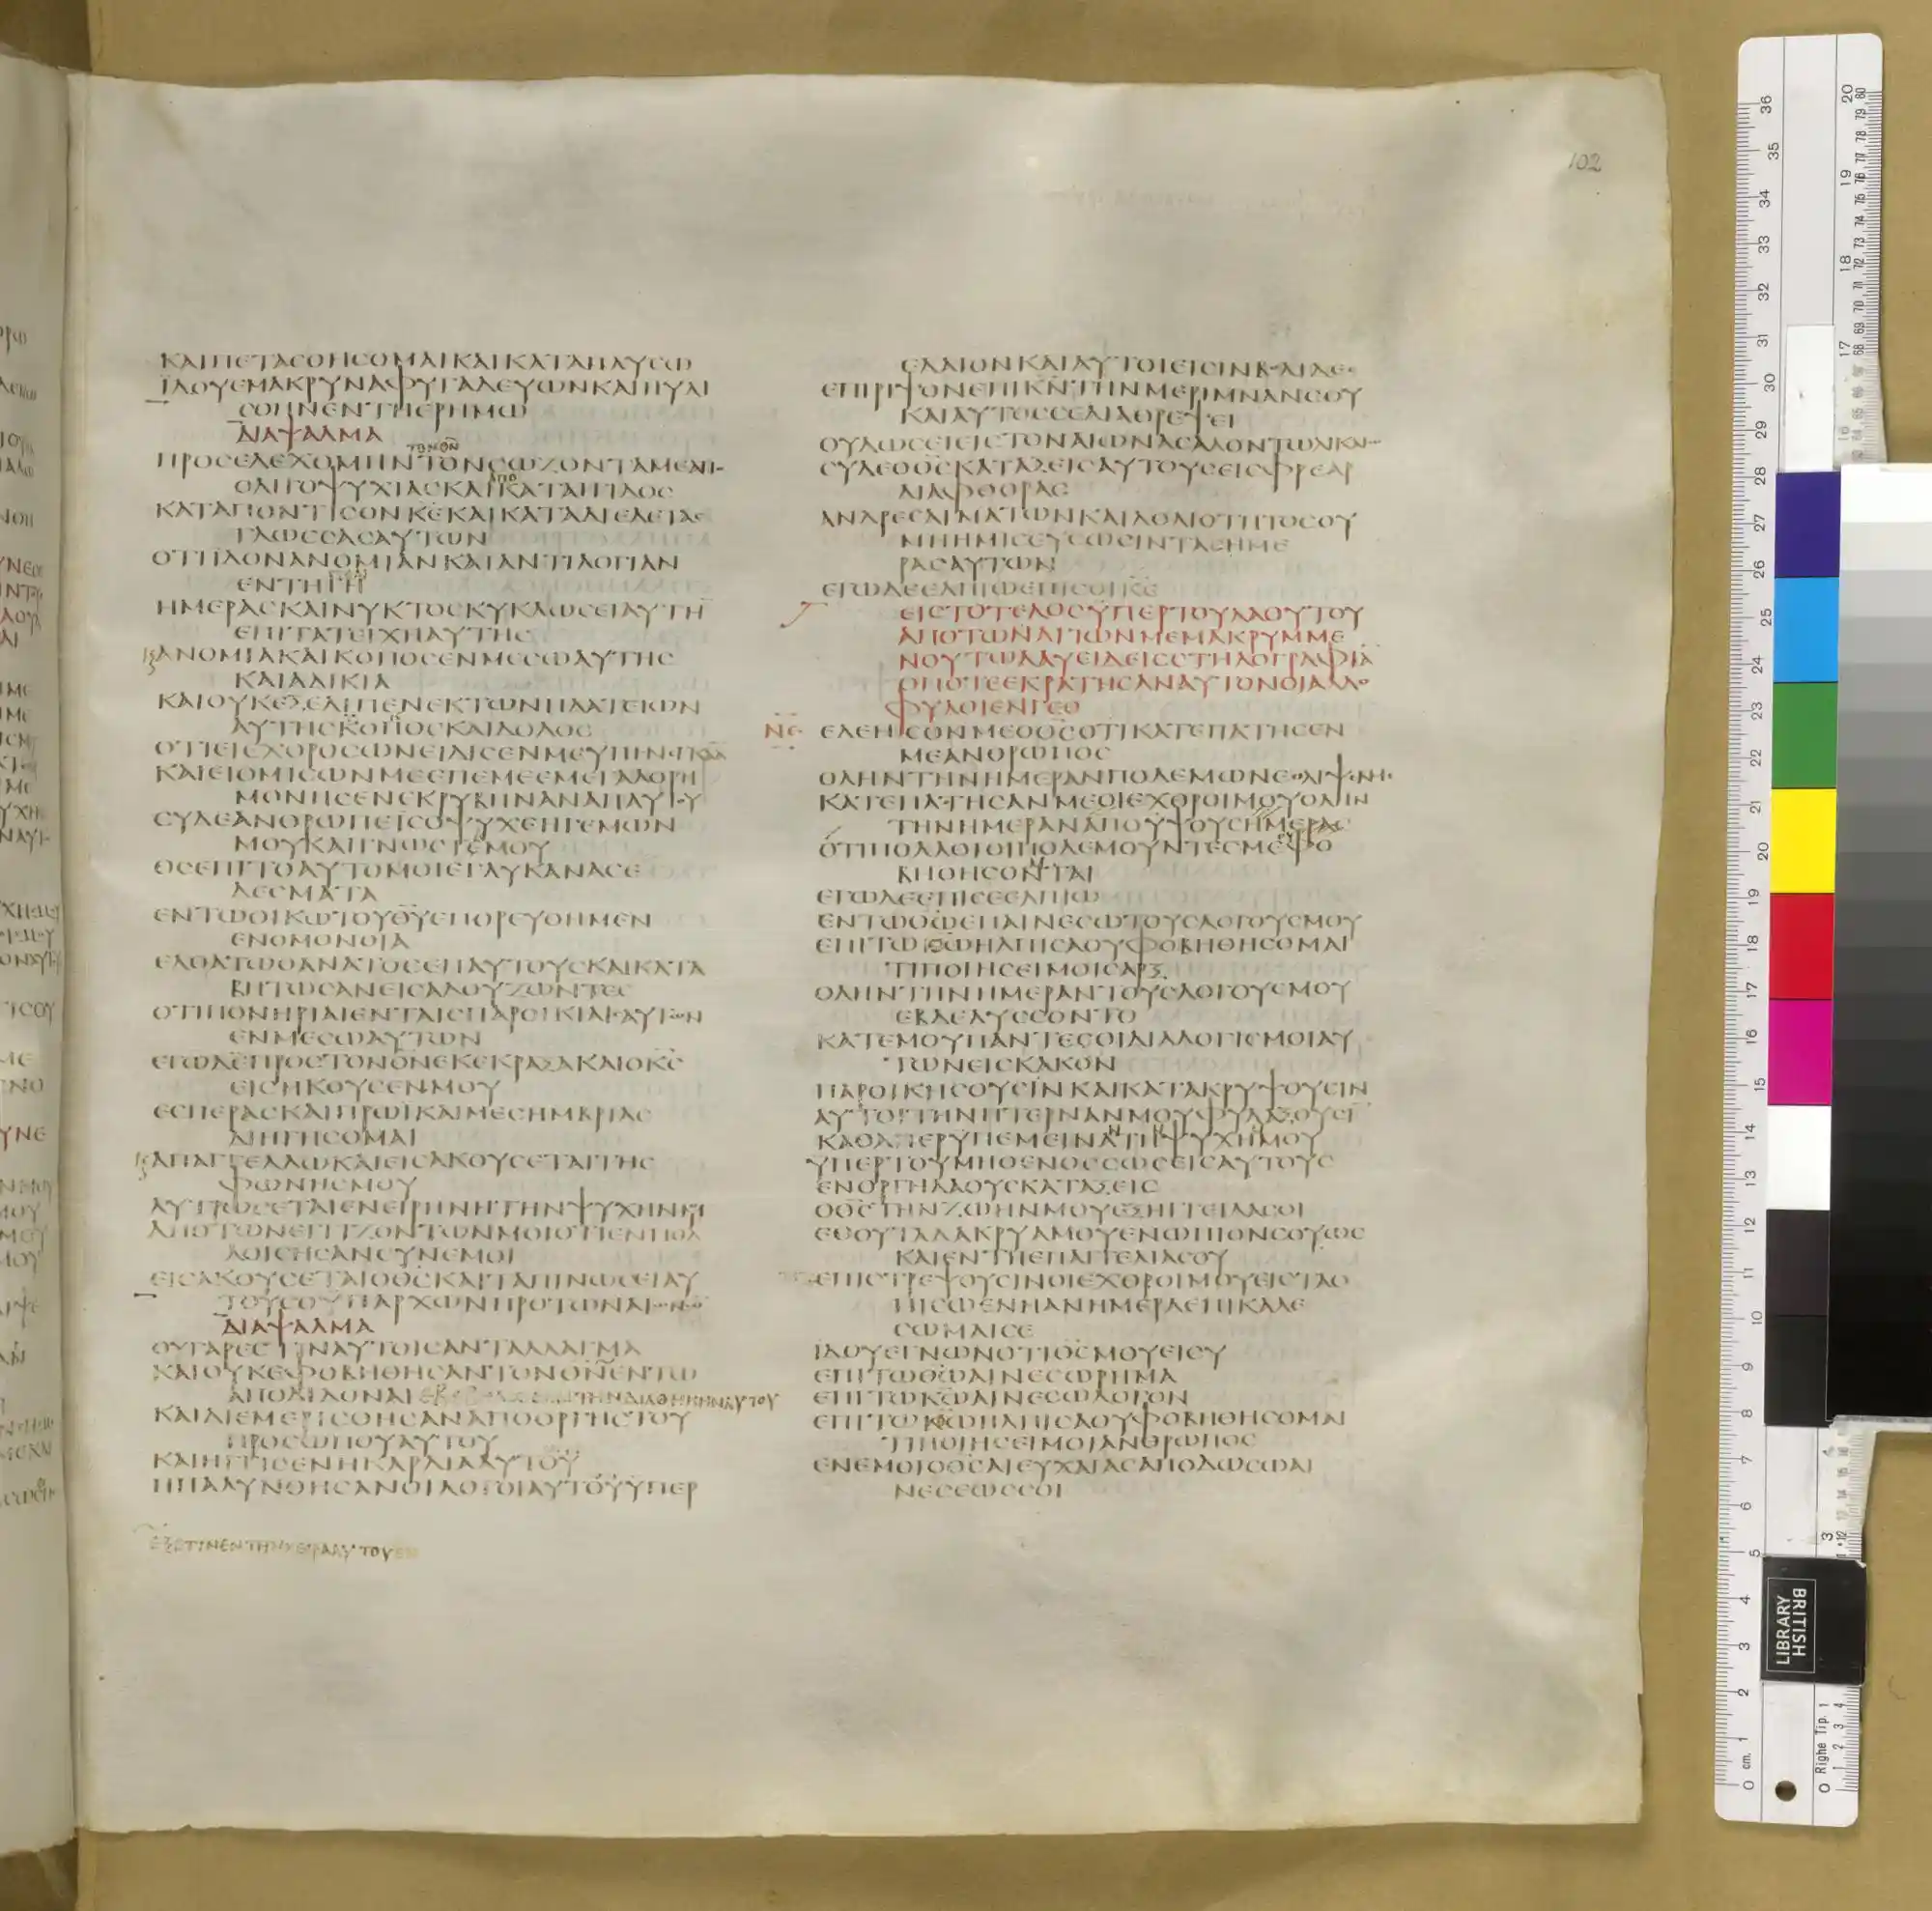 102
ΚΑΙΠΕΤΑΣΘΗΣΟΜΑΙΚΑΙΚΑΤΑΠΑΥΣΩ
ΪΔΟΥΕΜΑΚΡΥΝΑΦΥΓΑΔΕΥΩΝΚΑΙΗΥΛΙ
ΣΘΗΝΕΝΤΗΕΡΗΜΩ
ΔΙΑΨΑΛΜΑ
ΠΡΟΣΕΔΕΧΟΜΗΝΤΟΝΣΩΖΟΝΤΑΜΕΑΠΟ
ΟΛΙΓΟΨΥΧΙΑΣΚΑΙΚΑΤΑΙΓΙΔΟΣ
ΚΑΤΑΠΟΝΤΙΣΟΝΚΕΚΑΙΚΑΤΑΔΙΕΛΕΤΑΣ
ΓΛΩΣΣΑΣΑΥΤΩΝ
ΟΤΙΪΔΟΝΑΝΟΜΙΑΝΚΑΙΑΝΤΙΛΟΓΙΑΝ
ΕΝΤΗΓΗ
ΗΜΕΡΑΣΚΑΙΝΥΚΤΟΣΚΥΚΛΩΣΕΙΑΥΤΗ
ΕΠΙΤΑΤΕΙΧΗΑΥΤΗΣ
ΑΝΟΜΙΑΚΑΙΚΟΠΟΣΕΝΜΕΣΩΑΥΤΗΣ
ΚΑΙΑΔΙΚΙΑ
ΚΑΙΟΥΚΕΞΕΛΙΠΕΝΕΚΤΩΝΠΛΑΤΕΙΩΝ
ΑΥΤΗΣΚΟΠΟΣΚΑΙΔΟΛΟΣ
ΜΟΥΚΑΙΓΝΩΣΤΕΜΟΥ
ΟΣΕΠΙΤΟΑΥΤΟΜΟΙΕΓΛΥΚΑΝΑΣΕ
ΔΕΣΜΑΤΑ
ΕΝΤΩΟΙΚΩΤΟΥΘΥΕΠΟΡΕΥΘΗΜΕΝ
ΕΝΟΜΟΝΟΙΑ
ΕΛΘΑΤΩΘΑΝΑΤΟΣΕΠΑΥΤΟΥΣΚΑΙΚΑΤΑ
ΒΗΤΩΣΑΝΕΙΣΑΔΟΥΖΩΝΤΕΣ
ΟΤΙΠΟΝΗΡΙΑΙΕΝΤΑΙΣΠΑΡΟΙΚΙΑΙΣΑΥΤΩΝ
ΕΝΜΕΣΩΑΥΤΩΝ
ΕΓΩΔΕΠΡΟΣΤΟΝΘΝΕΚΕΚΡΑΞΑΚΑΙΟΚΣ
ΕΙΣΗΚΟΥΣΕΝΜΟΥ
ΕΣΠΕΡΑΣΚΑΙΠΡΩΪΚΑΙΜΕΣΗΜΒΡΙΑΣ
ΔΙΗΓΗΣΟΜΑΙ
ΑΠΑΓΓΕΛΛΩΚΑΙΕΙΣΑΚΟΥΣΕΤΑΙΤΗΣ
ΦΩΝΗΣΜΟΥ
ΛΥΤΡΩΣΕΤΑΙΕΝΕΙΡΗΝΗΤΗΝΨΥΧΗΝΜ
ΑΠΟΤΩΝΕΓΓΙΖΟΝΤΩΝΜΟΙΟΤΙΕΝΠΟΛ
ΛΟΙΣΗΣΑΝΣΥΝΕΜΟΙ
ΔΙΑΨΑΛΜΑ
ΟΥΓΑΡΕΣΤΙΝΑΥΤΟΙΣΑΝΤΑΛΛΑΓΜΑ
ΚΑΙΟΥΚΕΦΟΒΗΘΗΣΑΝΤΟΝΘΝΕΝΤΩ
ΑΠΟΔΙΔΟΝΑΙ
ΤΗΝΔΙΑΘΗΚΗΝΑΥΤΟΥ
ΚΑΙΔΙΕΜΕΡΙΣΘΗΣΑΝΑΠΟΟΡΓΗΣΤΟΥ
ΠΡΟΣΩΠΟΥΑΥΤΟΥ
ΚΑΙΗΓΓΙΣΕΝΗΚΑΡΔΙΑΑΥΤΟΥ
ΗΠΑΛΥΝΘΗΣΑΝΟΙΛΟΓΟΙΑΥΤΟΥΫΠΕΡ
ΕΛΑΙΟΝΚΑΙΑΥΤΟΙΕΙΣΙΝΒΟΛΙΔΕΣ
ΕΠΙΡΙΨΟΝΕΠΙΚΝΤΗΝΜΕΡΙΜΝΑΝΣΟΥ
ΚΑΙΑΥΤΟΣΣΕΔΙΑΘΡΕΨΕΙ
ΣΥΔΕΟΘΣΚΑΤΑΞΕΙΣΑΥΤΟΥΣΕΙΣΦΡΕΑΡ
ΔΙΑΦΘΟΡΑΣ
ΑΝΔΡΕΣΑΙΜΑΤΩΝΚΑΙΔΟΛΙΟΤΗΤΟΣΟΥ
ΜΗΗΜΙΣΕΥΣΩΣΙΝΤΑΣΗΜΕ
ΡΑΣΑΥΤΩΝ
ΕΓΩΔΕΕΛΠΙΩΕΠΙΣΟΙΚΕ
ΕΙΣΤΟΤΕΛΟΣΫΠΕΡΤΟΥΛΑΟΥΤΟΥ
ΑΠΟΤΩΝΑΓΙΩΝΜΕΜΑΚΡΥΜΜΕ
ΝΟΥΤΩΔΑΥΕΙΔΕΙΣΣΤΗΛΟΓΡΑΦΙΑ
ΟΠΟΤΕΕΚΡΑΤΗΣΑΝΑΥΤΟΝΟΙΑΛΛΟ
ΦΥΛΟΙΕΝΓΕΘ
ΝΕ ΕΛΕΗΣΟΝΜΕΟΘΣΟΤΙΚΑΤΕΠΑΤΗΣΕΝ
ΜΕΑΝΘΡΩΠΟΣ
ΟΛΗΝΤΗΝΗΜΕΡΑΝΠΟΛΕΜΩΝΕΘΛΙΨΕΝΜΕ
ΚΑΤΕΠΑΤΗΣΑΝΜΕΟΙΕΧΘΡΟΙΜΟΥΟΛΗΝ
ΤΗΝΗΜΕΡΑΝΑΠΟΥΨΟΥΣΗΜΕΡΑΣ
ΟΤΙΠΟΛΛΟΙΟΙΠΟΛΕΜΟΥΝΤΕΣΜΕΦΟ
ΒΗΘΗΣΟΝΤΑΙ
ΕΓΩΔΕΕΠΙΣΕΕΛΠΙΩ
ΕΝΤΩΘΩΕΠΑΙΝΕΣΩΤΟΥΣΛΟΓΟΥΣΜΟΥ
ΕΠΙΤΩΘΩΗΛΠΙΣΑΟΥΦΟΒΗΘΗΣΟΜΑΙ
ΤΙΠΟΙΗΣΕΙΜΟΙΣΑΡΞ
ΟΛΗΝΤΗΝΗΜΕΡΑΝΤΟΥΣΛΟΓΟΥΣΜΟΥ
ΕΒΔΕΛΥΣΣΟΝΤΟ
ΚΑΤΕΜΟΥΠΑΝΤΕΣΟΙΔΙΑΛΟΓΙΣΜΟΙΑΥ
ΤΩΝΕΙΣΚΑΚΟΝ
ΠΑΡΟΙΚΗΣΟΥΣΙΝΚΑΙΚΑΤΑΚΡΥΨΟΥΣΙΝ
ΑΥΤΟΙΤΗΝΠΤΕΡΝΑΝΜΟΥΦΥΛΑΞΟΥΣΙ
ΚΑΘΑΠΕΡΫΠΕΜΕΙΝΑΤΗΨΥΧΗΜΟΥ
ΥΠΕΡΤΟΥΜΗΘΕΝΟΣΣΩΣΕΙΣΑΥΤΟΥΣ
ΕΝΟΡΓΗΛΑΟΥΣΚΑΤΑΞΕΙΣ
ΟΘΣΤΗΝΖΩΗΝΜΟΥΕΞΗΓΓΕΙΛΑΣΟΙ
ΕΘΟΥΤΑΔΑΚΡΥΑΜΟΥΕΝΩΠΙΟΝΣΟΥΩΣ
ΚΑΙΕΝΤΗΕΠΑΓΓΕΛΙΑΣΟΥ
ΕΠΙΣΤΡΕΨΟΥΣΙΝΟΙΕΧΘΡΟΙΜΟΥΕΙΣΤΑΟ
ΠΙΣΩΕΝΗΑΝΗΜΕΡΑΕΠΙΚΑΛΕ
ΣΩΜΑΙΣΕ
ΪΔΟΥΕΓΝΩΝΟΤΙΘΣΜΟΥΕΙΣΥ
ΕΠΙΤΩΘΩΑΙΝΕΣΩΡΗΜΑ
ΕΠΙΤΩΚΩΑΙΝΕΣΩΛΟΓΟΝ
ΕΠΙΤΩΘΩΗΛΠΙΣΑΟΥΦΟΒΗΘΗΣΟΜΑΙ
ΤΙΠΟΙΗΣΕΙΜΟΙΑΝΘΡΩΠΟΣ
ΕΝΕΜΟΙΟΘΣΑΙΕΥΧΑΙΑΣΑΠΟΔΩΣΩΑΙ
ΝΕΣΕΩΣΣΟΙ
BRITISH
LIBRARY